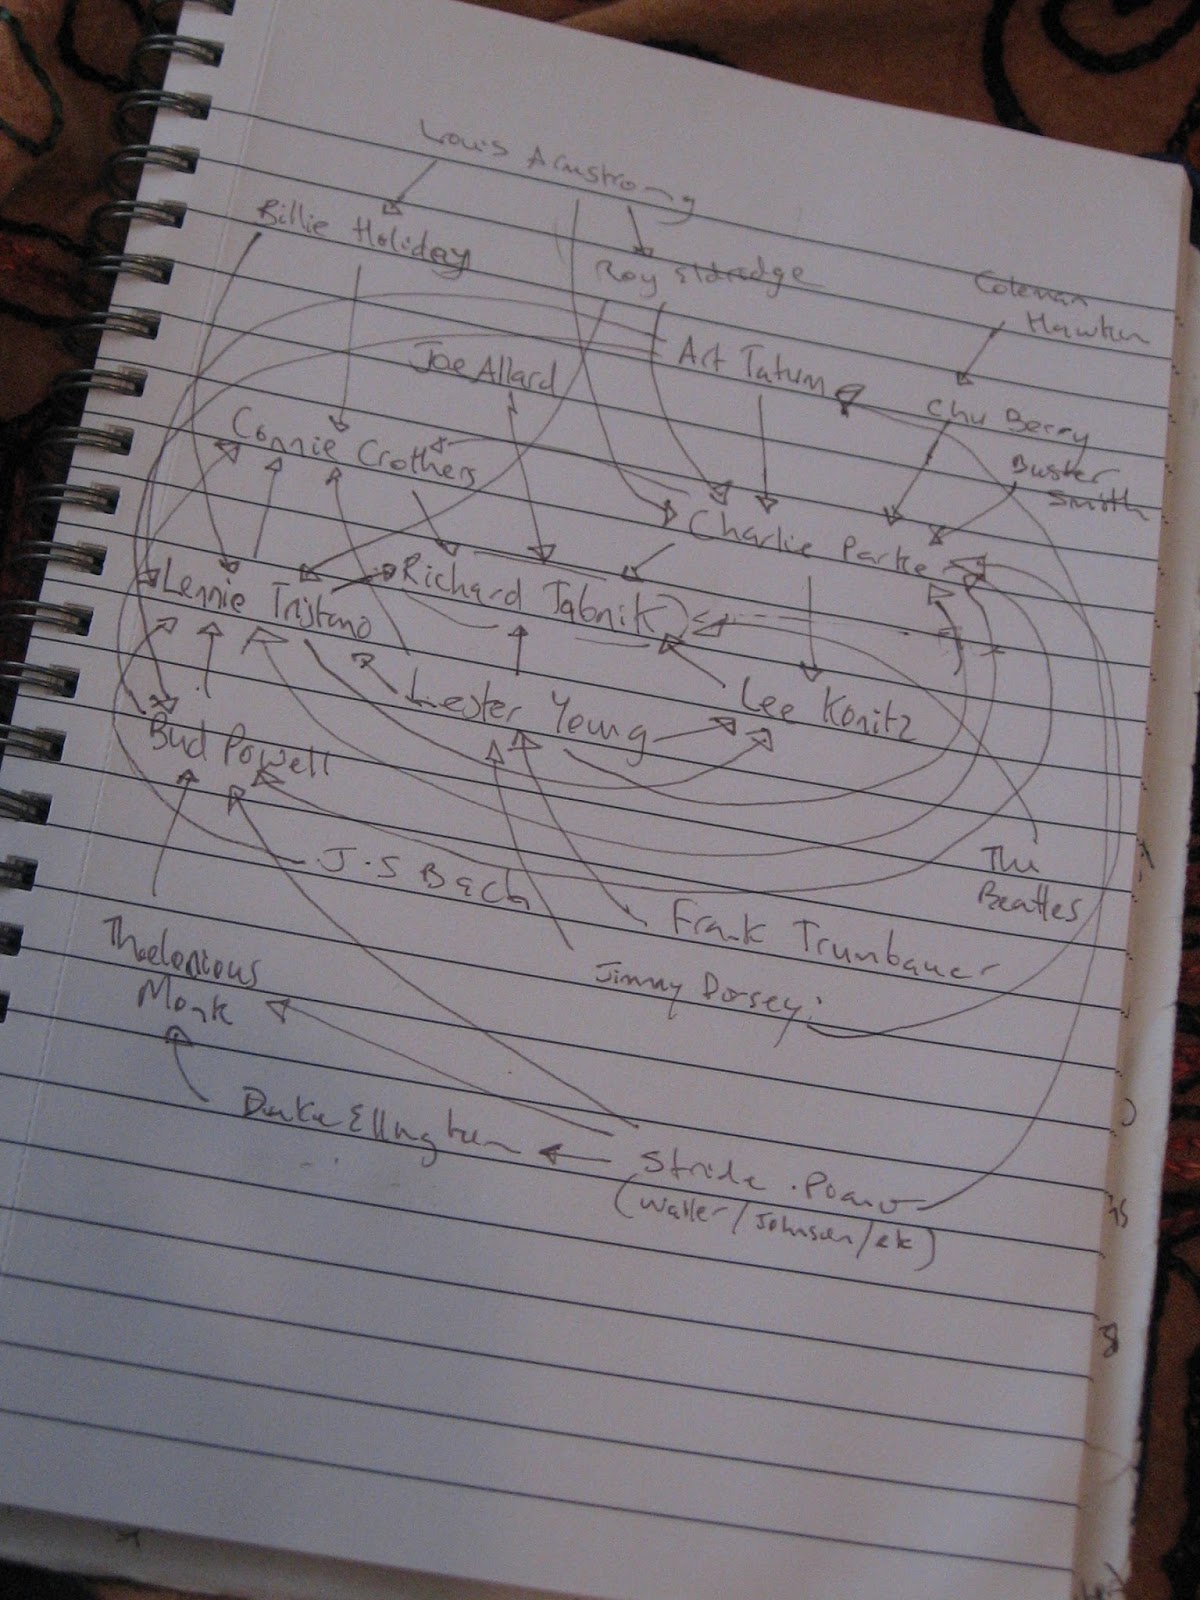 Louis Armstrong
Billie Holiday
Roy Eldredge
Coleman
Hawken
Joe Allard
Art Tatum
Chu Berry
Connie Crothers
Buster
Smith
Charlie Parker
Lennie Tristano
Richard Tabnik
Lester Young
Lee Konitz
Bud Powell
J.S Bach
The
Beatles
Frank Trumbauer
Thelonious
Monk
Jimmy Dorsey
Duke Ellington
Stride Piano
(Waller/Johnson/etc)